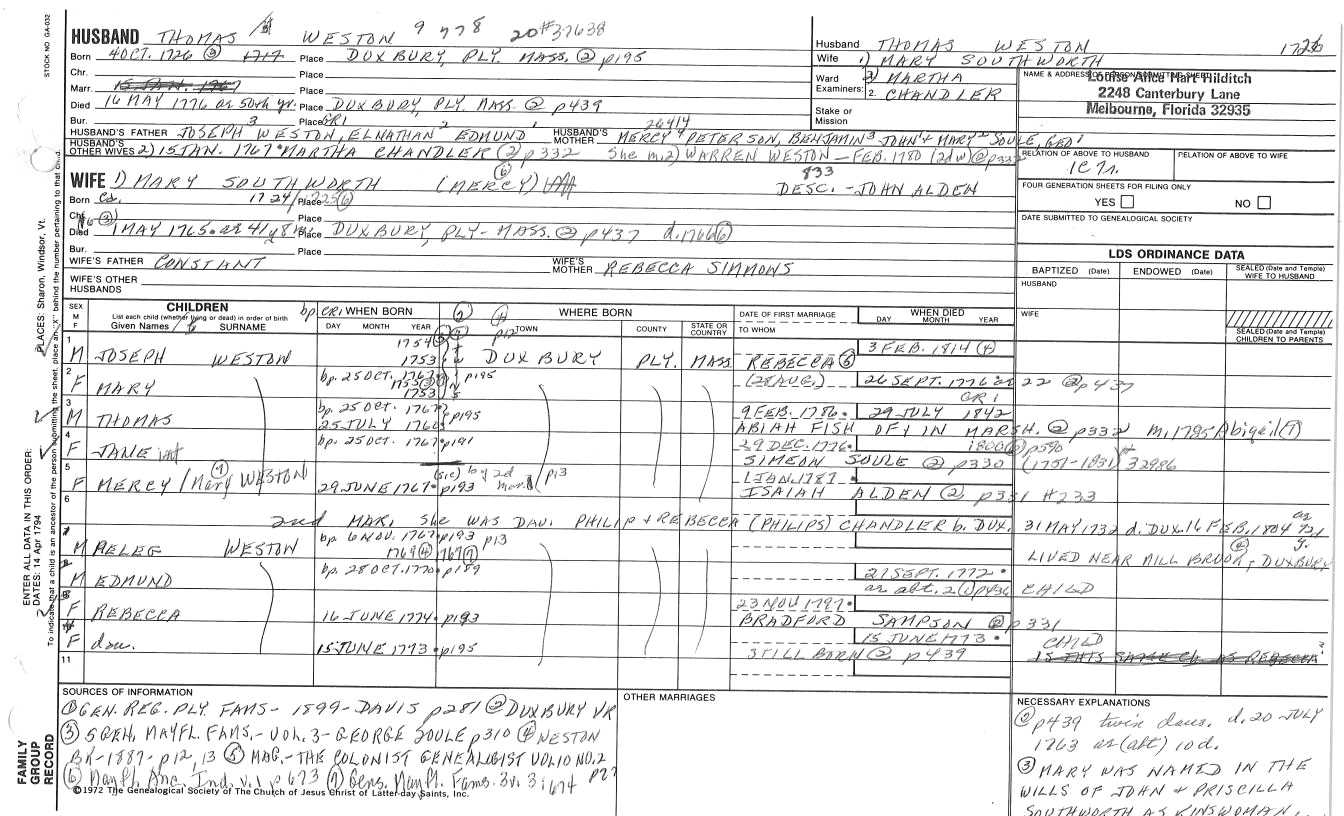 STOCK NO. GA-032
HUSBAND THOMAS WESTON 9 778 20#37638
Born 4 OCT. 1726 ② 1717 Place DUXBURY, PLY. MASS. ② p195
Chr. Place
Marr. 15 JAN. 1767 Place
Died 16 MAY 1776 as 50th yr. Place DUXBURY, PLY. MASS. ② p439
Bur. 3 Place GR1 26414
HUSBAND'S FATHER JOSEPH WESTON, ELNATHAN EDMUND HUSBAND'S MOTHER MERCY PETERSON, BENJAMIN JOHN & MARY SOULE, GEO
HUSBAND'S OTHER WIVES 2) 15 JAN. 1767 MARTHA CHANDLER ② p332 She m. 2) WARREN WESTON - FEB. 1780 (2d w) ② p332
WIFE 1) MARY SOUTHWORTH (MERCY) ⑥ 833 DESC. - JOHN ALDEN
Born Ca. 1724/25 ⑥ Place
Chr. ③ Place
Died 1 MAY 1765 Place DUXBURY, PLY- MASS. ② p437 d. 1766 ⑥
Bur. Place
WIFE'S FATHER CONSTANT WIFE'S MOTHER REBECCA SIMMONS
WIFE'S OTHER HUSBANDS
Husband THOMAS WESTON 1726
Wife 1) MARY SOUTHWORTH
Ward 2) MARTHA
Examiners: 2. CHANDLER
Stake or Mission
NAME & ADDRESS OF PERSON SUBMITTING SHEET
Louise Alice Hart Hilditch
2248 Canterbury Lane
Melbourne, Florida 32935
RELATION OF ABOVE TO HUSBAND RELATION OF ABOVE TO WIFE
FOUR GENERATION SHEETS FOR FILING ONLY
YES NO
DATE SUBMITTED TO GENEALOGICAL SOCIETY
LDS ORDINANCE DATA
BAPTIZED (Date) ENDOWED (Date) SEALED (Date and Temple) WIFE TO HUSBAND
HUSBAND
WIFE
SEALED (Date and Temple) CHILDREN TO PARENTS
SEX M F CHILDREN List each child (whether living or dead) in order of birth Given Names SURNAME
bp. GR1 WHEN BORN DAY MONTH YEAR
WHERE BORN TOWN COUNTY STATE OR COUNTRY
DATE OF FIRST MARRIAGE TO WHOM
WHEN DIED DAY MONTH YEAR
1 M JOSEPH WESTON 1754 1753 DUXBURY PLY. MASS. REBECCA ⑤ 3 FEB. 1814 ④
2 F MARY bp. 25 OCT. 1767 p195 1755 1753 (28 AUG.) 26 SEPT. 1776 22 ② p437 GR1
3 M THOMAS bp. 25 OCT. 1767 p195 25 JULY 1760 9 FEB. 1786 29 JULY 1842
ABIAH FISH OF/IN MARSH. ② p332 m. 1795 Abigail (T)
4 F JANE bp. 25 OCT. 1767 p191 29 DEC. 1776 1800 ⑥ p590
SIMEON SOULE ② p330 (1751-1831) # 32986
5 F MERCY / Mary ⑦ WESTON 29 JUNE 1767 p193 (sic) by 2d mar. p13 1 JAN. 1787
ISAIAH ALDEN ② p331 #233
6 2nd MAR. SHE WAS DAU. PHILIP & REBECCA (PHILIPS) CHANDLER b. DUX. 31 MAY 1732 d. DUX. 16 FEB. 1804
7 M PELEG WESTON bp. 6 NOV. 1767 p193 p13 1769 ④ 1767 ⑦ LIVED NEAR MILL BROOK, DUXBURY
M EDMUND bp. 28 OCT. 1770 p189 21 SEPT. 1772 as abt. 2 p436 CHILD
F REBECCA 16 JUNE 1774 p193 23 NOV 1797
BRADFORD SAMPSON ② p331
F dau. 15 JUNE 1773 p195 15 JUNE 1773 CHILD
STILLBORN ② p439 IS THIS SAME CH. AS REBECCA?
11
SOURCES OF INFORMATION
① GEN. REG. PLY. FAMS - 1899 - DAVIS p281 ② DUXBURY VR
③ 5 GEN. MAYFL. FAMS. - VOL. 3 - GEORGE SOULE p310 ④ WESTON
BK - 1887 - p12, 13 ⑤ MAG. - THE COLONIST GENEALOGIST VOL 10 NO. 2
⑥ Mayfl. Anc. Ind. v. 1 p673 ⑦ Gens. Mayfl. Fams. 3v. 3: 674 p27
OTHER MARRIAGES
NECESSARY EXPLANATIONS
② p439 twin daus. d. 20 JULY
1763 as (abt) 10 d.
③ MARY WAS NAMED IN THE
WILLS OF JOHN & PRISCILLA
SOUTHWORTH AS KINSWOMAN.
©1972 The Genealogical Society of The Church of Jesus Christ of Latter-day Saints, Inc.
FAMILY GROUP RECORD
ENTER ALL DATA IN THIS ORDER:
DATES: 14 Apr 1794
PLACES: Sharon, Windsor, Vt.
To indicate that a child is an ancestor of the person submitting the sheet, place an "X" behind the number pertaining to that child.